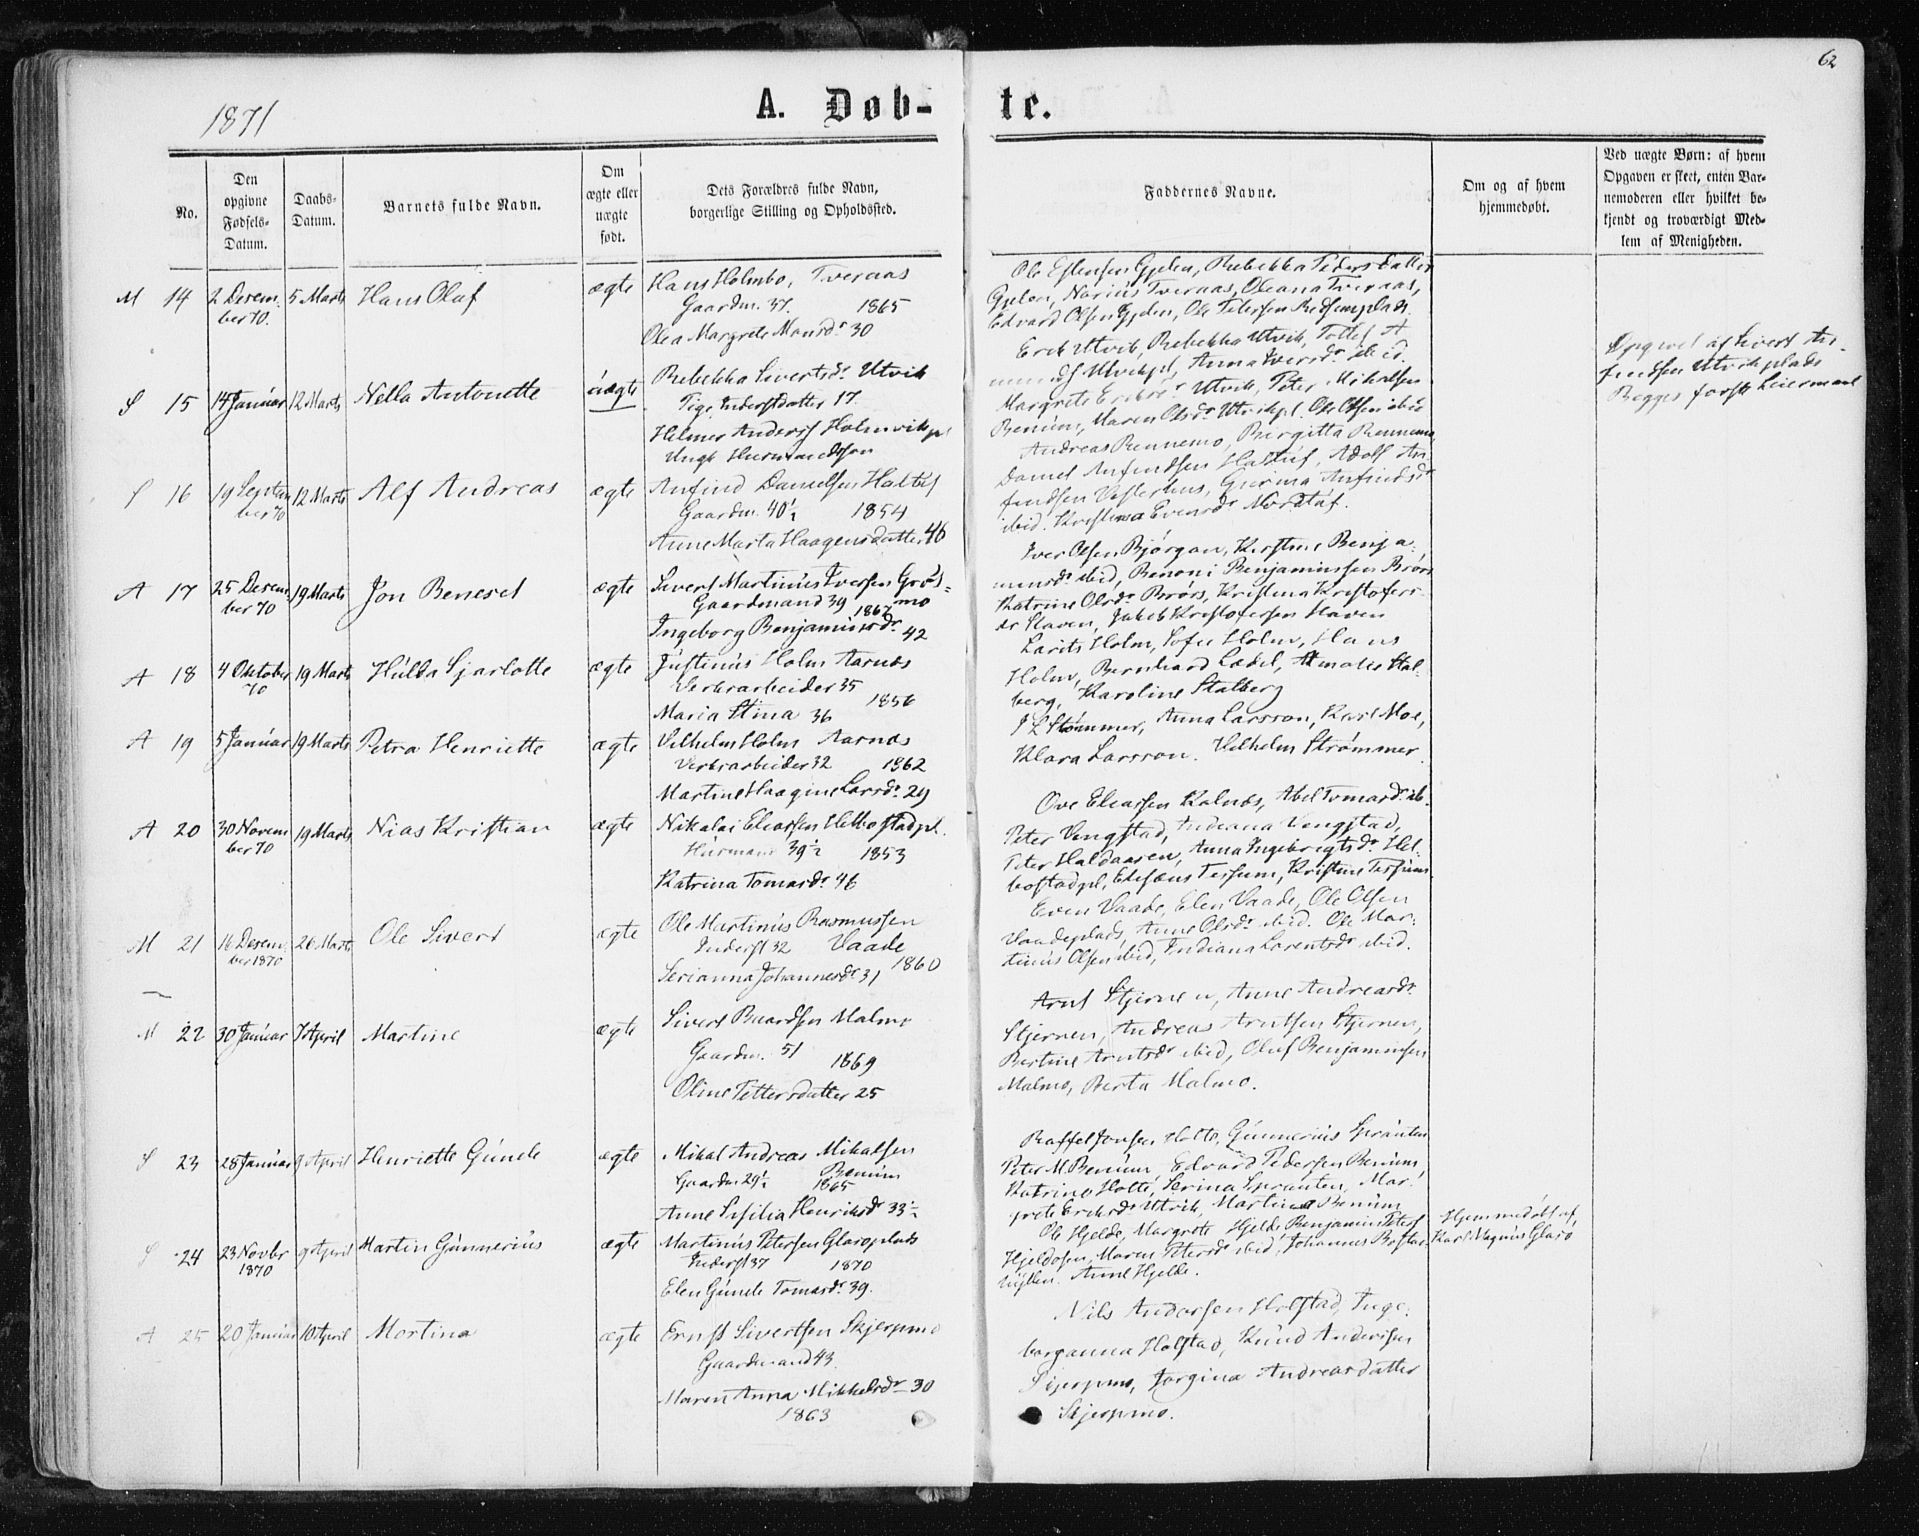 62
1871
A. Døb-
te.
No.
Den opgivne Fødsels-Datum.
Daabs-Datum.
Barnets fulde Navn.
Om ægte eller uægte født.
Dets Forældres fulde Navn, borgerlige Stilling og Opholdssted.
Faddernes Navne.
Om og af hvem hjemmedøbt.
Ved uægte Børn: af hvem
Opgaven er skeet, enten Bar-
nemoderen eller hvilket be-
kjendt og troværdigt Med-
lem af Menigheden.
M 14 2 Desem- 5 Marts Hans Olaf ægte Hans Holmbo, Tveraas
ber 70. Gaardm. 37. 1865
Olea Margrete Monsdr 30
Ole Estensen Gjelen, Rebekka Pedersdatter
Gjelen, Norius Tveraas, Oleana Tveraas,
Edvard Olsen Gjelen, Ole Petersen
S 15 14 Januar 12 Marts Nella Antonette uægte Rebekka Sivertsdr Utvik
Pige, Inderstdatter 17.
Helmer Anders Holmvikpl
Ungk Husmandssøn
Erik Utvik, Rebekka Utvik,
Utvikpl, Anna Iversdr ibid.
Margrete Eriksdr Utvik, Peter Mikalsen
Benum, Maren Olsdr Utvikpl. Ole Olsen ibid
Opgivet af Sivert An-
findsen Utvikplads
Begges første Leiermaal
S 16 19 Septem 12 Marts Alf Andreas ægte Anfind Danielsen Haltuf
ber 70 Gaardm. 40½ 1854
Anne Marta Haagensdatter 46
Andreas Rennemo, Birgitta Rennemo,
Daniel Anfindsen Haltuf, Adolf An-
findsen Vesterhus, Gurina Anfindsdr
ibid. Kristina Evensdr
A 17 25 Desem 19 Marts Jon Beneset ægte Sivert Martinus Iversen Grøs-
ber 70 Gaardmand 39 1867 mo
Ingeborg Benjaminsdr 42
Iver Olsen Bjørgan, Kirstine Benja-
minsdr ibid, Benoni Benjaminsen Brørs
Katrine Olsdr Brørs, Kristina Kristofers-
dr Staven, Jakob Kristofersen Staven
A 18 4 Oktober 19 Marts Hulda Sjarlotte ægte Justinus Holm Aarnes
70 Verksarbeider 35
Maria Stina 36 1856
Larits Holm, Sofie Holm, Hans
Holm, Bernhard Lædel, Amalie Stal-
berg, Karoline Stalberg
A 19 5 Januar 19 Marts Petra Henriette ægte Vilhelm Holm Aarnes
Verksarbeider 32 1862
Martine Haagine Larsdr 29
P L Strømmer, Anna Larsson, Karl Moe,
Klara Larsson. Vilhelm Strømmer.
A 20 30 Novem 19 Marts Nias Kristian ægte Nikolai Eliassen Helbostadpl.
ber 70 Husmand 39½ 1853
Katrina Tomasdr 46
Ove Eliassen Kalnes, Abel Tomasdr ib.
Peter Vengstad, Indiana Vengstad,
Peter Haldaaren, Anna Ingebrigtsdr Hel-
bostadpl, Elisæus Tessum, Kristine Tessum
M 21 16 Desem 26 Marts Ole Sivert ægte Ole Martinus Rasmussen
ber 1870 Inderst 32 Vaade
Serianna Johannesdr 31 1860
Even Vaade, Elen Vaade, Ole Olsen
Vaadeplads, Anne Olsdr ibid. Ole Mar-
tinus Olsen ibid, Indiana Larentsdr ibid.
M 22 30 Januar 7 April Martine ægte Sivert Baardsen Malmo
Gaardm. 51
1869
Oline Pettersdatter 25
Arnt Stjernen, Anne Andreasdr
Stjernen, Andreas Arntsen Stjernen,
Bertine Arntsdr ibid, Oluf Benjaminsen
Malmo, Berta Malmo.
S 23 28 Januar 9 April Henriette Gunele ægte Mikal Andreas Mikalsen
Gaardm 29½ 1865 Benum
Anne Sisilia Henriksdr 33½
Raffel Jonsen Holte, Gunnerius Sprauten
Peter M. Benum, Edvard Pedersen Benum,
Katrine Holte, Serina Sprauten, Mar-
grete Eriksdr Utvik, Martine Benum
S 24 23 Novbr 9 April Martin Gunnerius ægte Martinus Petersen Glasoplads
1870 Inderst 37 1870
Elen Gunele Tomasdr 39.
Ole Hjelde, Margrete Hjelde, Benjamin Peters
Hjeldosen, Maren Petersdr ibid, Johannes Bostad
Anne Hjelde.
Hjemmedøbt af,
Karl Magnus Glaso
A 25 20 Januar 10 April Mortina ægte Ernst Sivertsen Skjerpmo
Gaardmand 43.
Maren Anna Mikkelsdr 30
1863
Nils Andersen Holstad, Inge-
borganna Holstad, Knud Andersen
Skjerpmo, Jorgina Andreasdatter
Skjerpmo.